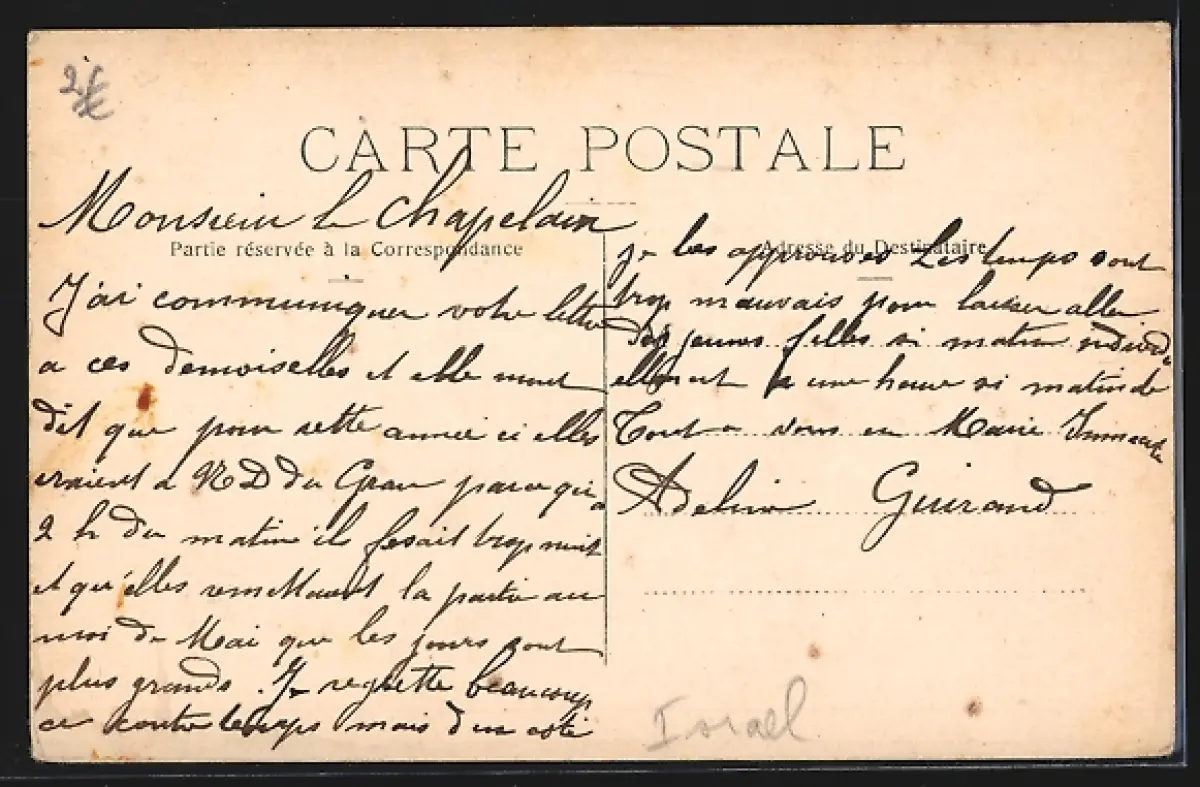 2€
CARTE POSTALE
Monsieur le Chapelain
Partie réservée à la Correspondance
Adresse du Destinataire
J'ai communiquer votre lettre
a ces demoiselles et elle mont
dit que pour cette année ci elles
iraient a N D du Grau parce qu'a
2 h du matin il fesait trop nuit
et qu'elles remettaient la partie au
moi de Mai que les jours sont
plus grands. Je regrette beaucoup
ce contre temps mais d'un coté
je les approuves Les temps sont
trop mauvais pour laisser aller
des jeunes filles si matin
a une heure si matinale
Tout a vous en Marie Immaculée
Adeline Guiraud
Israel